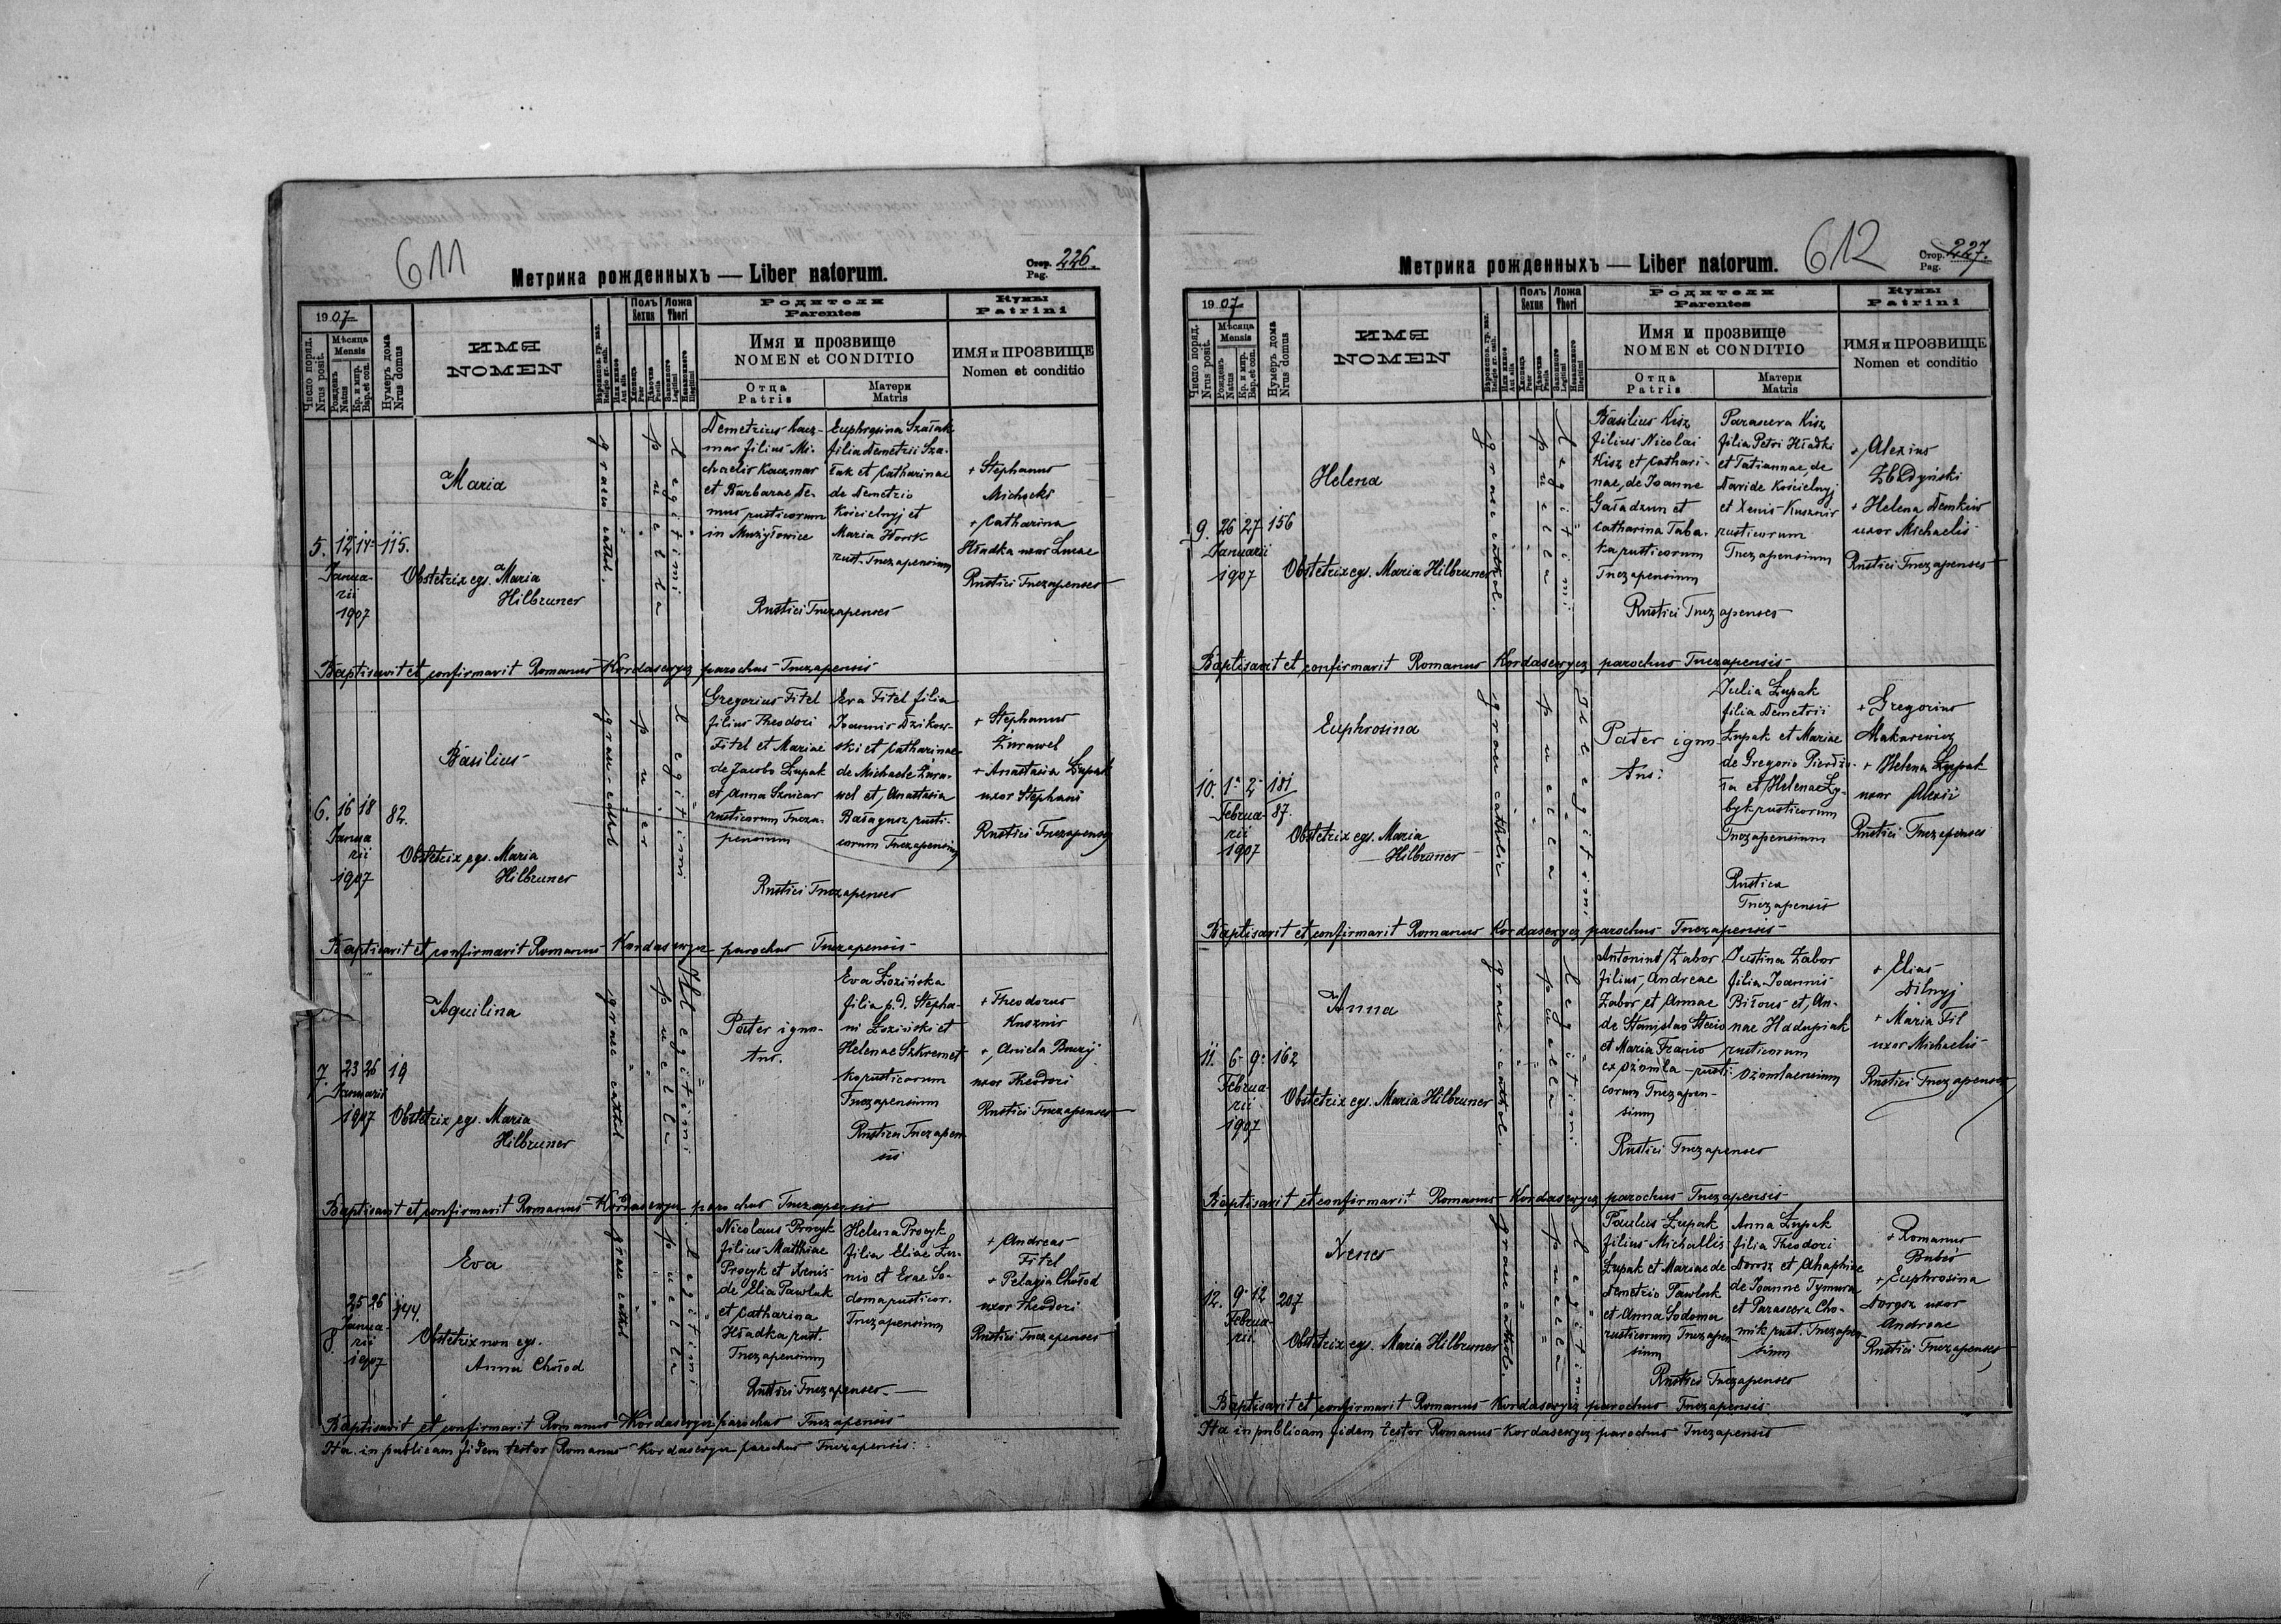 611
Метрика рожденныхъ — Liber natorum.
Стор. Pag. 226.
1907
Число поряд. Nrus posit.
Мѣсяца Mensis
Рожденъ Natus
Кр. и мир. Bap. et con.
Нумеръ дома Nrus domus
ИМЯ NOMEN
Полъ Sexus
Ложа Thori
Родители Parentes
Имя и прозвище
NOMEN et CONDITIO
Отца Patris
Матери Matris
Кумы Patrini
ИМЯ и ПРОЗВИЩЕ
Nomen et conditio
5. 12 14 115.
Januarii
1907
Maria
Obstetrix egs. Maria
Hilbruner
graeco cathol.
puella
legitimi
Demetrius Kacz-
mar filius Mi-
chaelis Kaczmar
et Barbarae De-
mus rusticorum
in Mużyłowice
Euphrosina Szałak
filia Demetrii Sza-
łak et Catharinae
de Demetrio
Kościelnyj et
Maria Hłork
rust. Tuczapensium
Rustici Tuczapenses
+ Stephanus
Michacki
+ Catharina
Hładka uxor Lucae
Rustici Tuczapenses
Baptisavit et confirmavit Romanus Kordasewycz parochus Tuczapensis
6. 16 18 82.
Januarii
1907
Basilius
Obstetrix egs. Maria
Hilbruner
puer
legitimi
Gregorius Fitel
filius Theodori
Fitel et Mariae
de Jacobo Łupak
et Anna Sznicar
rusticorum Tucza-
pensium
Eva Fitel filia
Joannis Dzikow-
ski et Catharinae
de Michaele Żura-
wel et Anastasia
Bałagusz rusti-
corum Tuczapensium
Rustici Tuczapenses
+ Stephanus
Żurawel
+ Anastasia Łupak
uxor Stephani
Rustici Tuczapenses
Baptisavit et confirmavit Romanus Kordasewycz parochus Tuczapensis
7. 23 26 19
Januarii
1907
Aquilina
Obstetrix egs. Maria
Hilbruner
graec cathol
puella
Illegitimi
Pater igno-
tus.
Eva Łozińska
filia p. d. Stepha-
ni Łoziński et
Helenae Szkremet-
ko rusticorum
Tuczapensium
Rustica Tuczapen
sis
+ Theodorus
Kusznir
+ Aniela Buczij
uxor Theodori
Rustici Tuczapenses
Baptisavit et confirmavit Romanus Kordasewycz parochus Tuczapensis
8. 25 26 144.
Januarii
1907
Eva
Obstetrix non egs.
Anna Chołod
graec cathol
puella
legitimi
Nicolaus Procyk
filius Matthiae
Procyk et Xenis
de Elia Pawluk
et Catharina
Hładka rust.
Tuczapensium
Helena Procyk
filia Eliae Łu-
nio et Evae So-
doma rusticor.
Tuczapensium
Rustici Tuczapenses
+ Andreas
Fitel
+ Pelagia Chołod
uxor Theodori
Rustici Tuczapenses
Baptisavit et confirmavit Romanus Kordasewycz parochus Tuczapensis
Ita in publicam fidem testor Romanus Kordasewycz parochus Tuczapensis
612
Метрика рожденныхъ — Liber natorum.
Стор. Pag. 227.
1907
Число поряд. Nrus posit.
Мѣсяца Mensis
Рожденъ Natus
Кр. и мир. Bap. et con.
Нумеръ дома Nrus domus
ИМЯ NOMEN
Полъ Sexus
Ложа Thori
Родители Parentes
Имя и прозвище
NOMEN et CONDITIO
Отца Patris
Матери Matris
Кумы Patrini
ИМЯ и ПРОЗВИЩЕ
Nomen et conditio
9. 26 27 156
Januarii
1907
Helena
Obstetrix egs. Maria Hilbruner
graec cathol.
puella
legitimi
Basilius Kisz
filius Nicolai
Kisz et Cathari-
nae, de Joanne
Gaładzun et
Catharina Taba-
ka rusticorum
Tuczapensium
Parascева Kisz
filia Petri Hładki
et Tatiannae, de
Davide Kościelnyj
et Xenis Kusznir
rusticorum
Tuczapensium
Rustici Tuczapenses
+ Alexius
Zbłdyński
+ Helena Demkiw
uxor Michaelis
Rustici Tuczapenses
Baptisavit et confirmavit Romanus Kordasewycz parochus Tuczapensis
10. 1 2 181/87.
Februarii
1907
Euphrosina
Obstetrix egs. Maria
Hilbruner
graec catholic
puella
Illegitimi
Pater igno-
tus:
Julia Łupak
filia Demetrii
Łupak et Mariae
de Gregorio Pierdzi-
ła et Helenae Zy-
byk rusticorum
Tuczapensium
Rustica
Tuczapensis
+ Gregorius
Makarewicz
+ Helena Łupak
uxor Alexii
Rustici Tuczapenses
Baptisavit et confirmavit Romanus Kordasewycz parochus Tuczapensis
11. 6 9 162
Februarii
1907
Anna
Obstetrix egs. Maria Hilbruner
graec. cathol.
puella
legitimi
Antonius Zabor
filius Andreae
Zabor et Annae
de Stanislao Stecio
et Maria Franio
ex Ożomla rusti-
corum Tuczapen-
sium
Justina Zabor
filia Joannis
Biłous et An-
nae Hadupiak
rusticorum
Ożomlaensium
Rustici Tuczapenses
+ Elias
Dilnyj
+ Maria Fil
uxor Michaelis
Rustici Tuczapenses
Baptisavit et confirmavit Romanus Kordasewycz parochus Tuczapensis
12. 9 12 207
Februarii
Xenes
Obstetrix egs. Maria Hilbruner
graec cathol.
puella
legitimi
Paulus Łupak
filius Michallis
Łupak et Mariae de
Demetrio Pawluk
et Anna Sodoma
rusticorum Tuczapen-
sium
Anna Łupak
filia Theodori
Dorosz et Ahaphiae
de Joanne Tymura
et Parasceva Cho-
mik rust. Tuczapen-
sium
Rustici Tuczapenses
+ Romanus
Babiś
+ Euphrosina
Dorosz uxor
Andreae
Rustici Tuczapenses
Baptisavit et confirmavit Romanus Kordasewycz parochus Tuczapensis
Ita in publicam fidem testor Romanus Kordasewycz parochus Tuczapensis